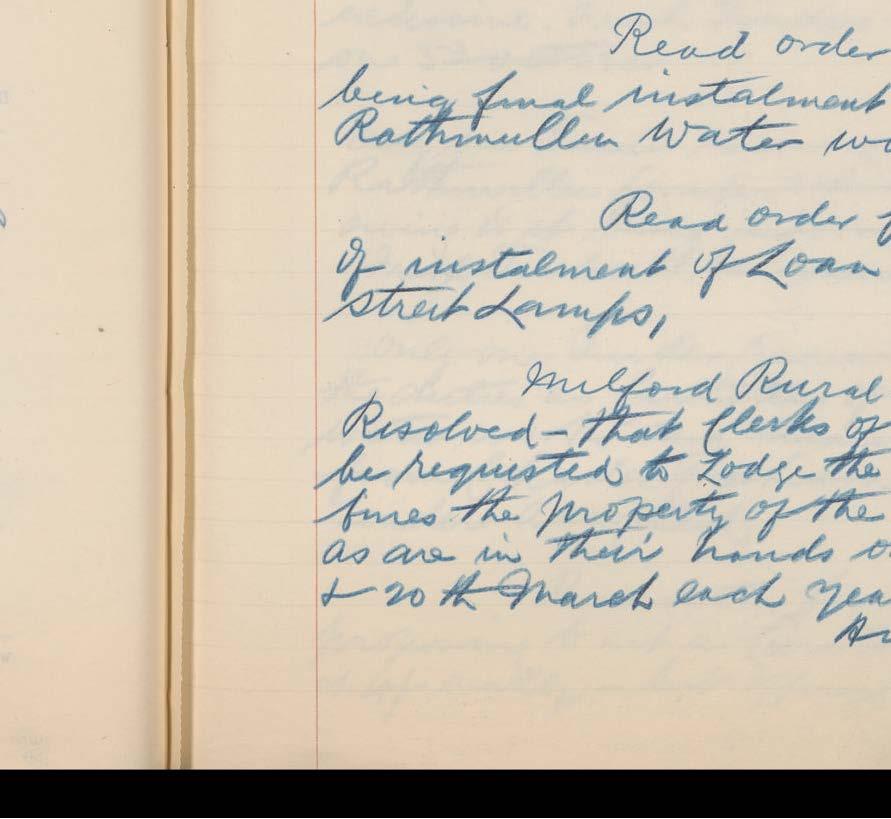 Read order
being final instalment
Rathmullen Water
Read order
of instalment of Loan
street Lamps,
Milford Rural
Resolved - that Clerks of
be requested to Lodge the
fines the property of the
as are in their hands
& 20th March each